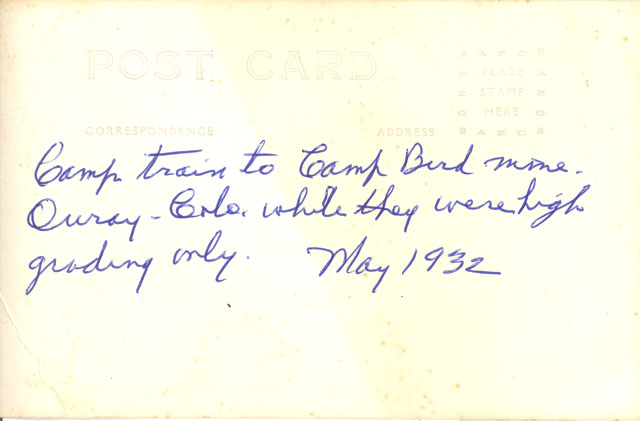 POST CARD
AZO
PLACE
STAMP
HERE
AZO
CORRESPONDENCE ADDRESS
Camp train to Camp Bird mine.
Ouray - Colo. while they were high
grading only. May 1932